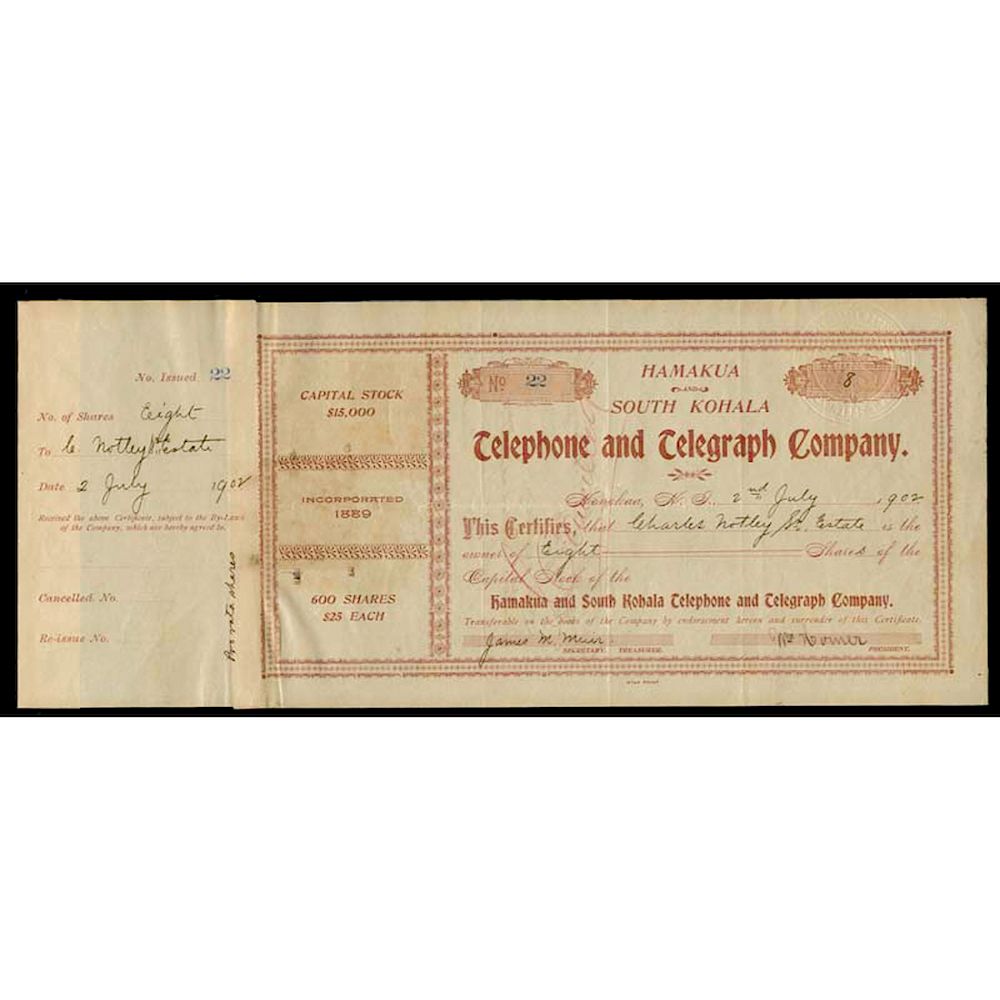 No. Issued 22
No. of Shares Eight
To C. Notley Sr. Estate
Date 2 July 1902
Received the above Certificate, subject to the By-Laws
of the Company, which are hereby agreed to.
Cancelled No.
Re-issue No.
Pro rata shares
CAPITAL STOCK
$15,000
INCORPORATED
1889
600 SHARES
$25 EACH
No 22
HAMAKUA
AND
SOUTH KOHALA
8
Telephone and Telegraph Company.
Honokaa, H. I., 2nd July 1902
This Certifies, that Charles Notley Sr. Estate is the
owner of Eight Shares of the
Capital Stock of the
Hamakua and South Kohala Telephone and Telegraph Company.
Transferable on the books of the Company by endorsement hereon and surrender of this Certificate.
James M. Muir Wm Horner
SECRETARY. TREASURER. PRESIDENT.